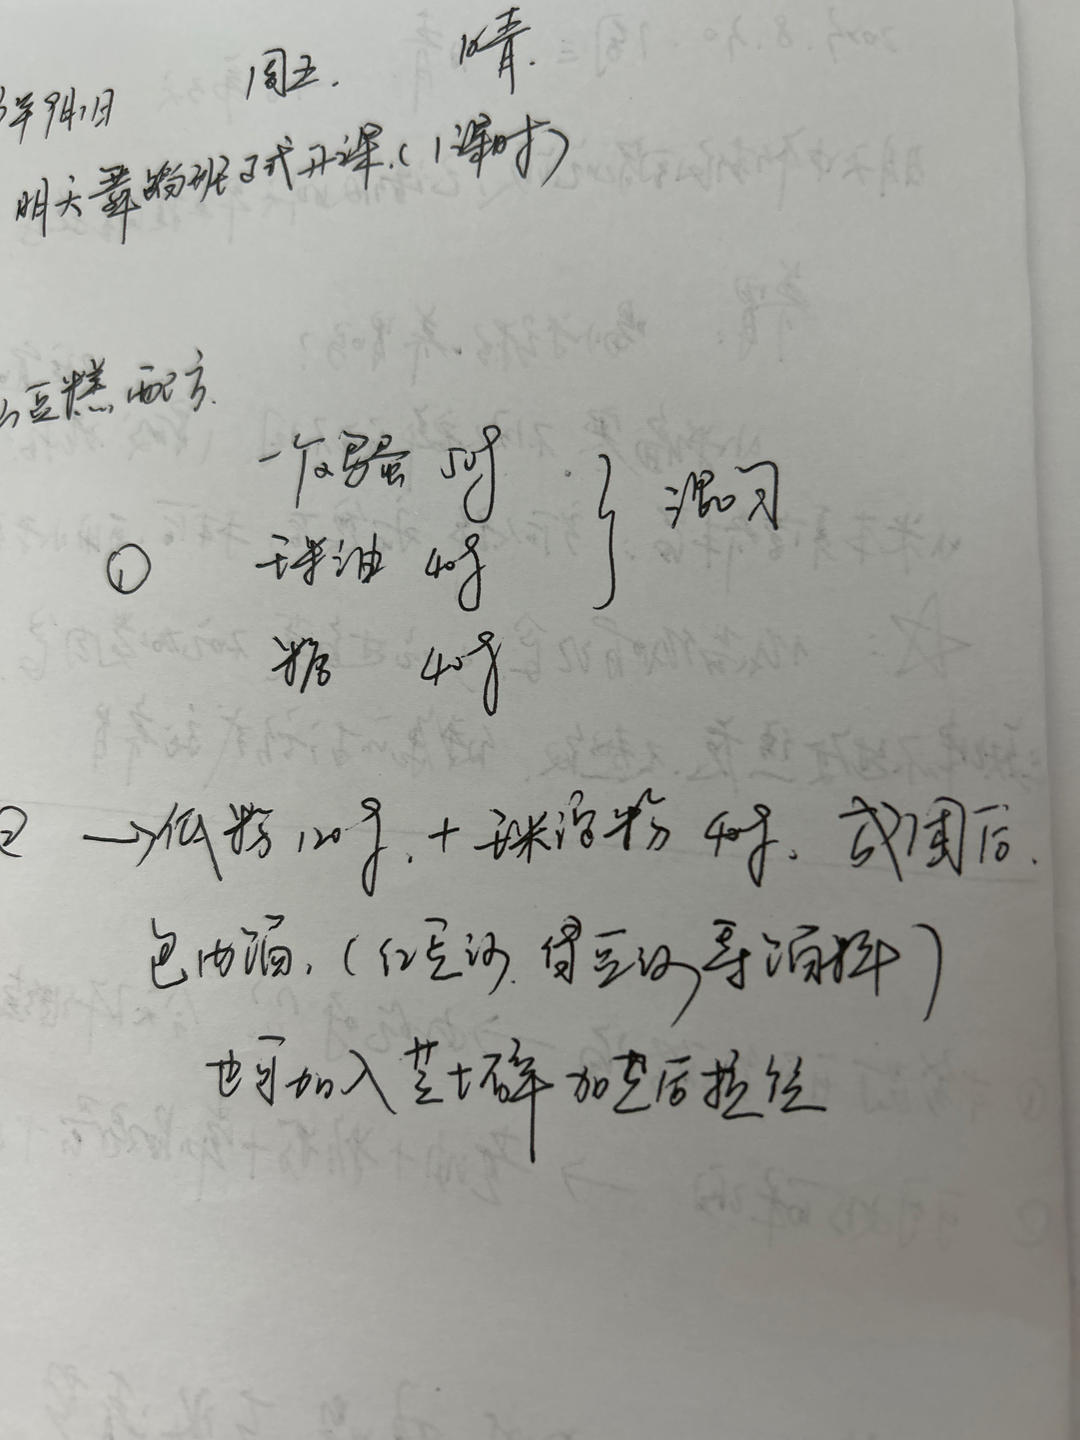 年9月1日 周五. 晴.
明天舞蹈班正式开课.(1课时)
豆糕配方.
一个鸡蛋 50g
① 玉米油 40g
糖 40g
} 混匀
② →低粉120g.+玉米淀粉40g. 成团后.
包内馅.(红豆沙.绿豆沙等馅料)
也可加入芝士碎加芝后拉丝